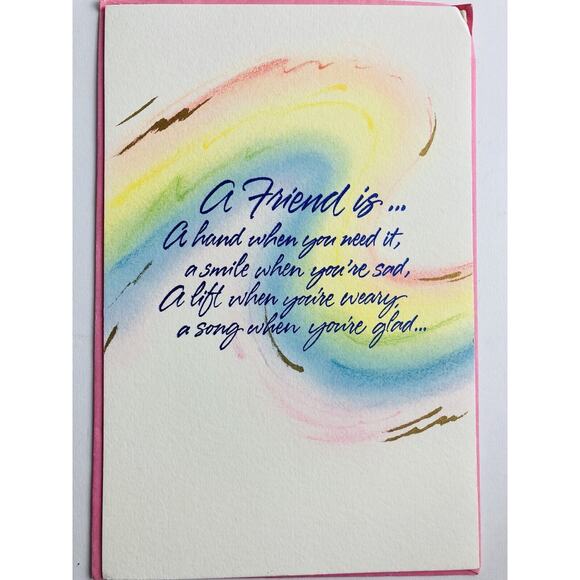 A Friend is...
A hand when you need it,
a smile when you're sad,
A lift when you're weary,
a song when you're glad...